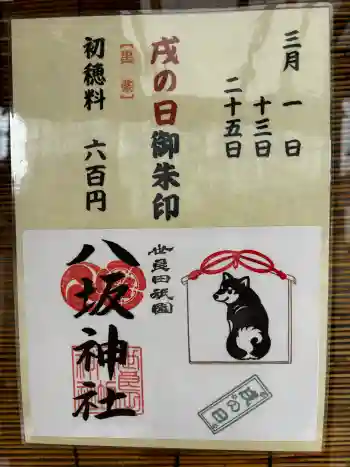 三月 一日
十三日
二十五日
戌の日御朱印
【墨書】
初穂料 六百円
世良田祇園
八坂神社
戌の日